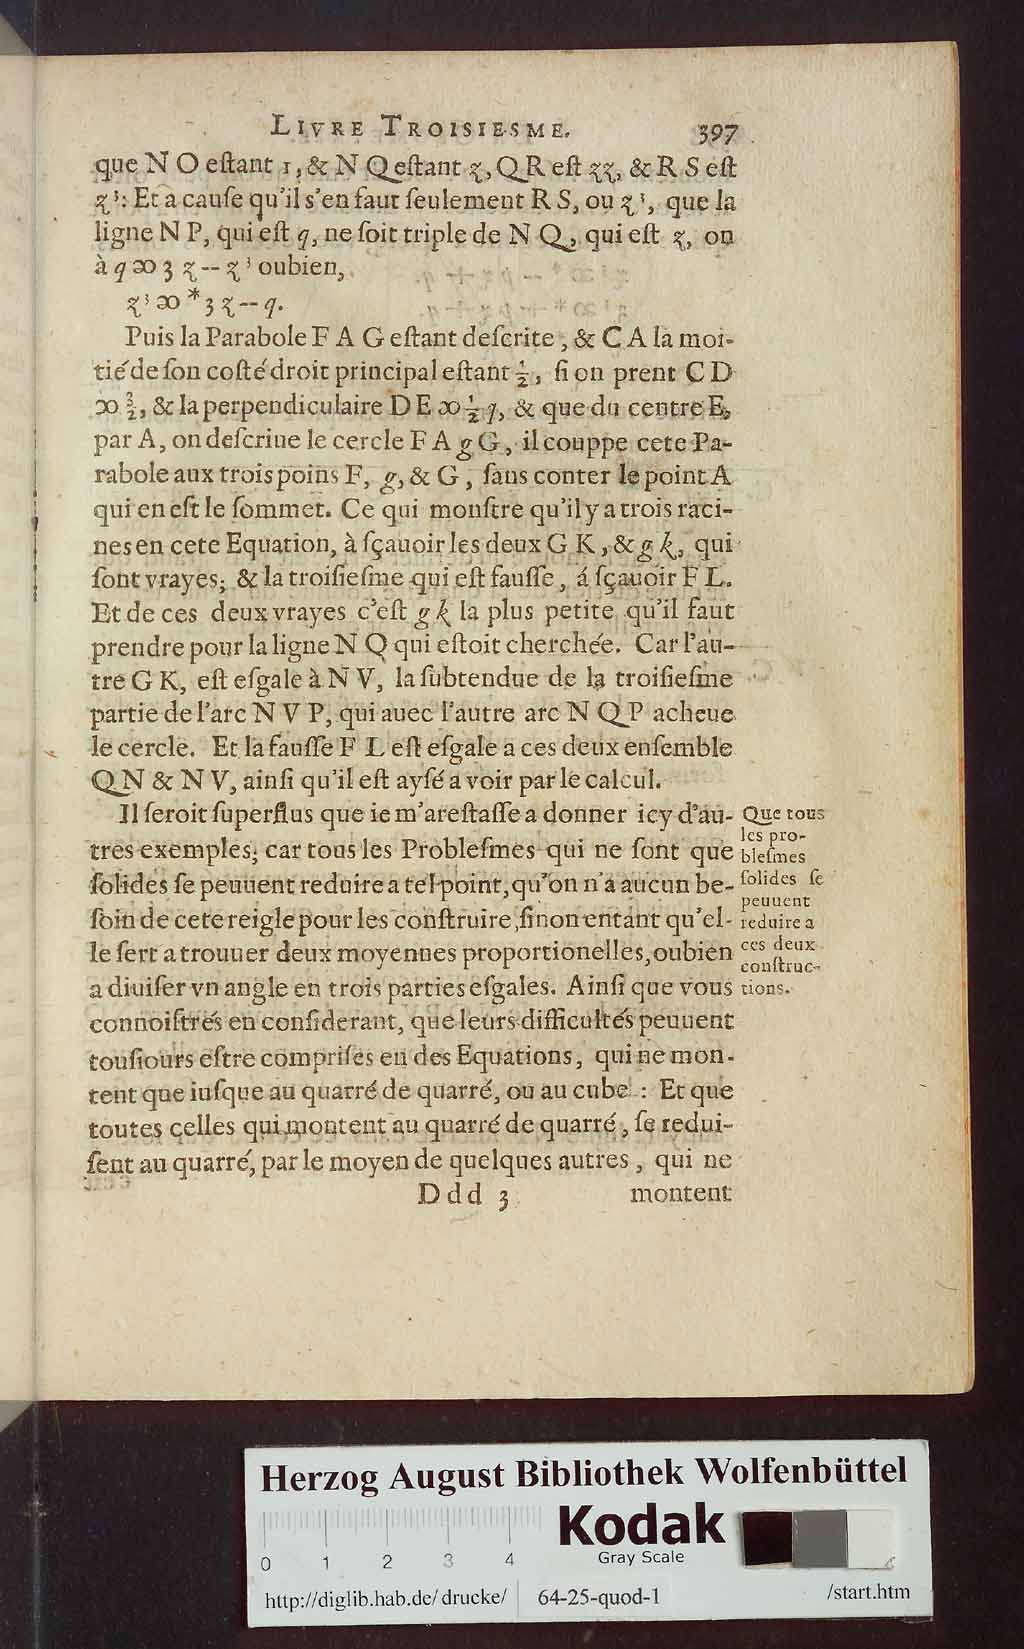 LIVRE TROISIESME. 397
que N O eſtant 1, & N Q eſtant z, Q R eſt zz, & R S eſt
z³: Et a cauſe qu'il s'en faut ſeulement R S, ou z³, que la
ligne N P, qui eſt q, ne ſoit triple de N Q, qui eſt z, on
à q ꝏ 3 z -- z³ oubien,
z³ ꝏ * 3 z -- q.
Puis la Parabole F A G eſtant deſcrite, & C A la moi-
tié de ſon coſté droit principal eſtant ½, ſi on prent C D
ꝏ 3/2, & la perpendiculaire D E ꝏ ½ q, & que du centre E,
par A, on deſcriue le cercle F A g G, il couppe cete Pa-
rabole aux trois poins F, g, & G, ſans conter le point A
qui en eſt le ſommet. Ce qui monſtre qu'il y a trois raci-
nes en cete Equation, à ſçauoir les deux G K, & g k, qui
ſont vrayes; & la troiſieſme qui eſt fauſſe, á ſçauoir F L.
Et de ces deux vrayes c'eſt g k la plus petite qu'il faut
prendre pour la ligne N Q qui eſtoit cherchée. Car l'au-
tre G K, eſt eſgale à N V, la ſubtendue de la troiſieſme
partie de l'arc N V P, qui auec l'autre arc N Q P acheue
le cercle. Et la fauſſe F L eſt eſgale a ces deux enſemble
Q N & N V, ainſi qu'il eſt ayſé a voir par le calcul.
Il ſeroit ſuperflus que ie m'areſtaſſe a donner icy d'au-
tres exemples; car tous les Probleſmes qui ne ſont que
ſolides ſe peuuent reduire a tel point, qu'on n'a aucun be-
ſoin de cete reigle pour les conſtruire, ſinon entant qu'el-
le ſert a trouuer deux moyennes proportionelles, oubien
a diuiſer vn angle en trois parties eſgales. Ainſi que vous
connoiſtrés en conſiderant, que leurs difficultés peuuent
touſiours eſtre compriſes en des Equations, qui ne mon-
tent que iuſque au quarré de quarré, ou au cube: Et que
toutes celles qui montent au quarré de quarré, ſe redui-
ſent au quarré, par le moyen de quelques autres, qui ne
Ddd 3 montent
Que tous
les pro-
bleſmes
ſolides ſe
peuuent
reduire a
ces deux
conſtruc-
tions.
Herzog August Bibliothek Wolfenbüttel
Kodak
Gray Scale
0 1 2 3 4
http://diglib.hab.de/drucke/ 64-25-quod-1 /start.htm